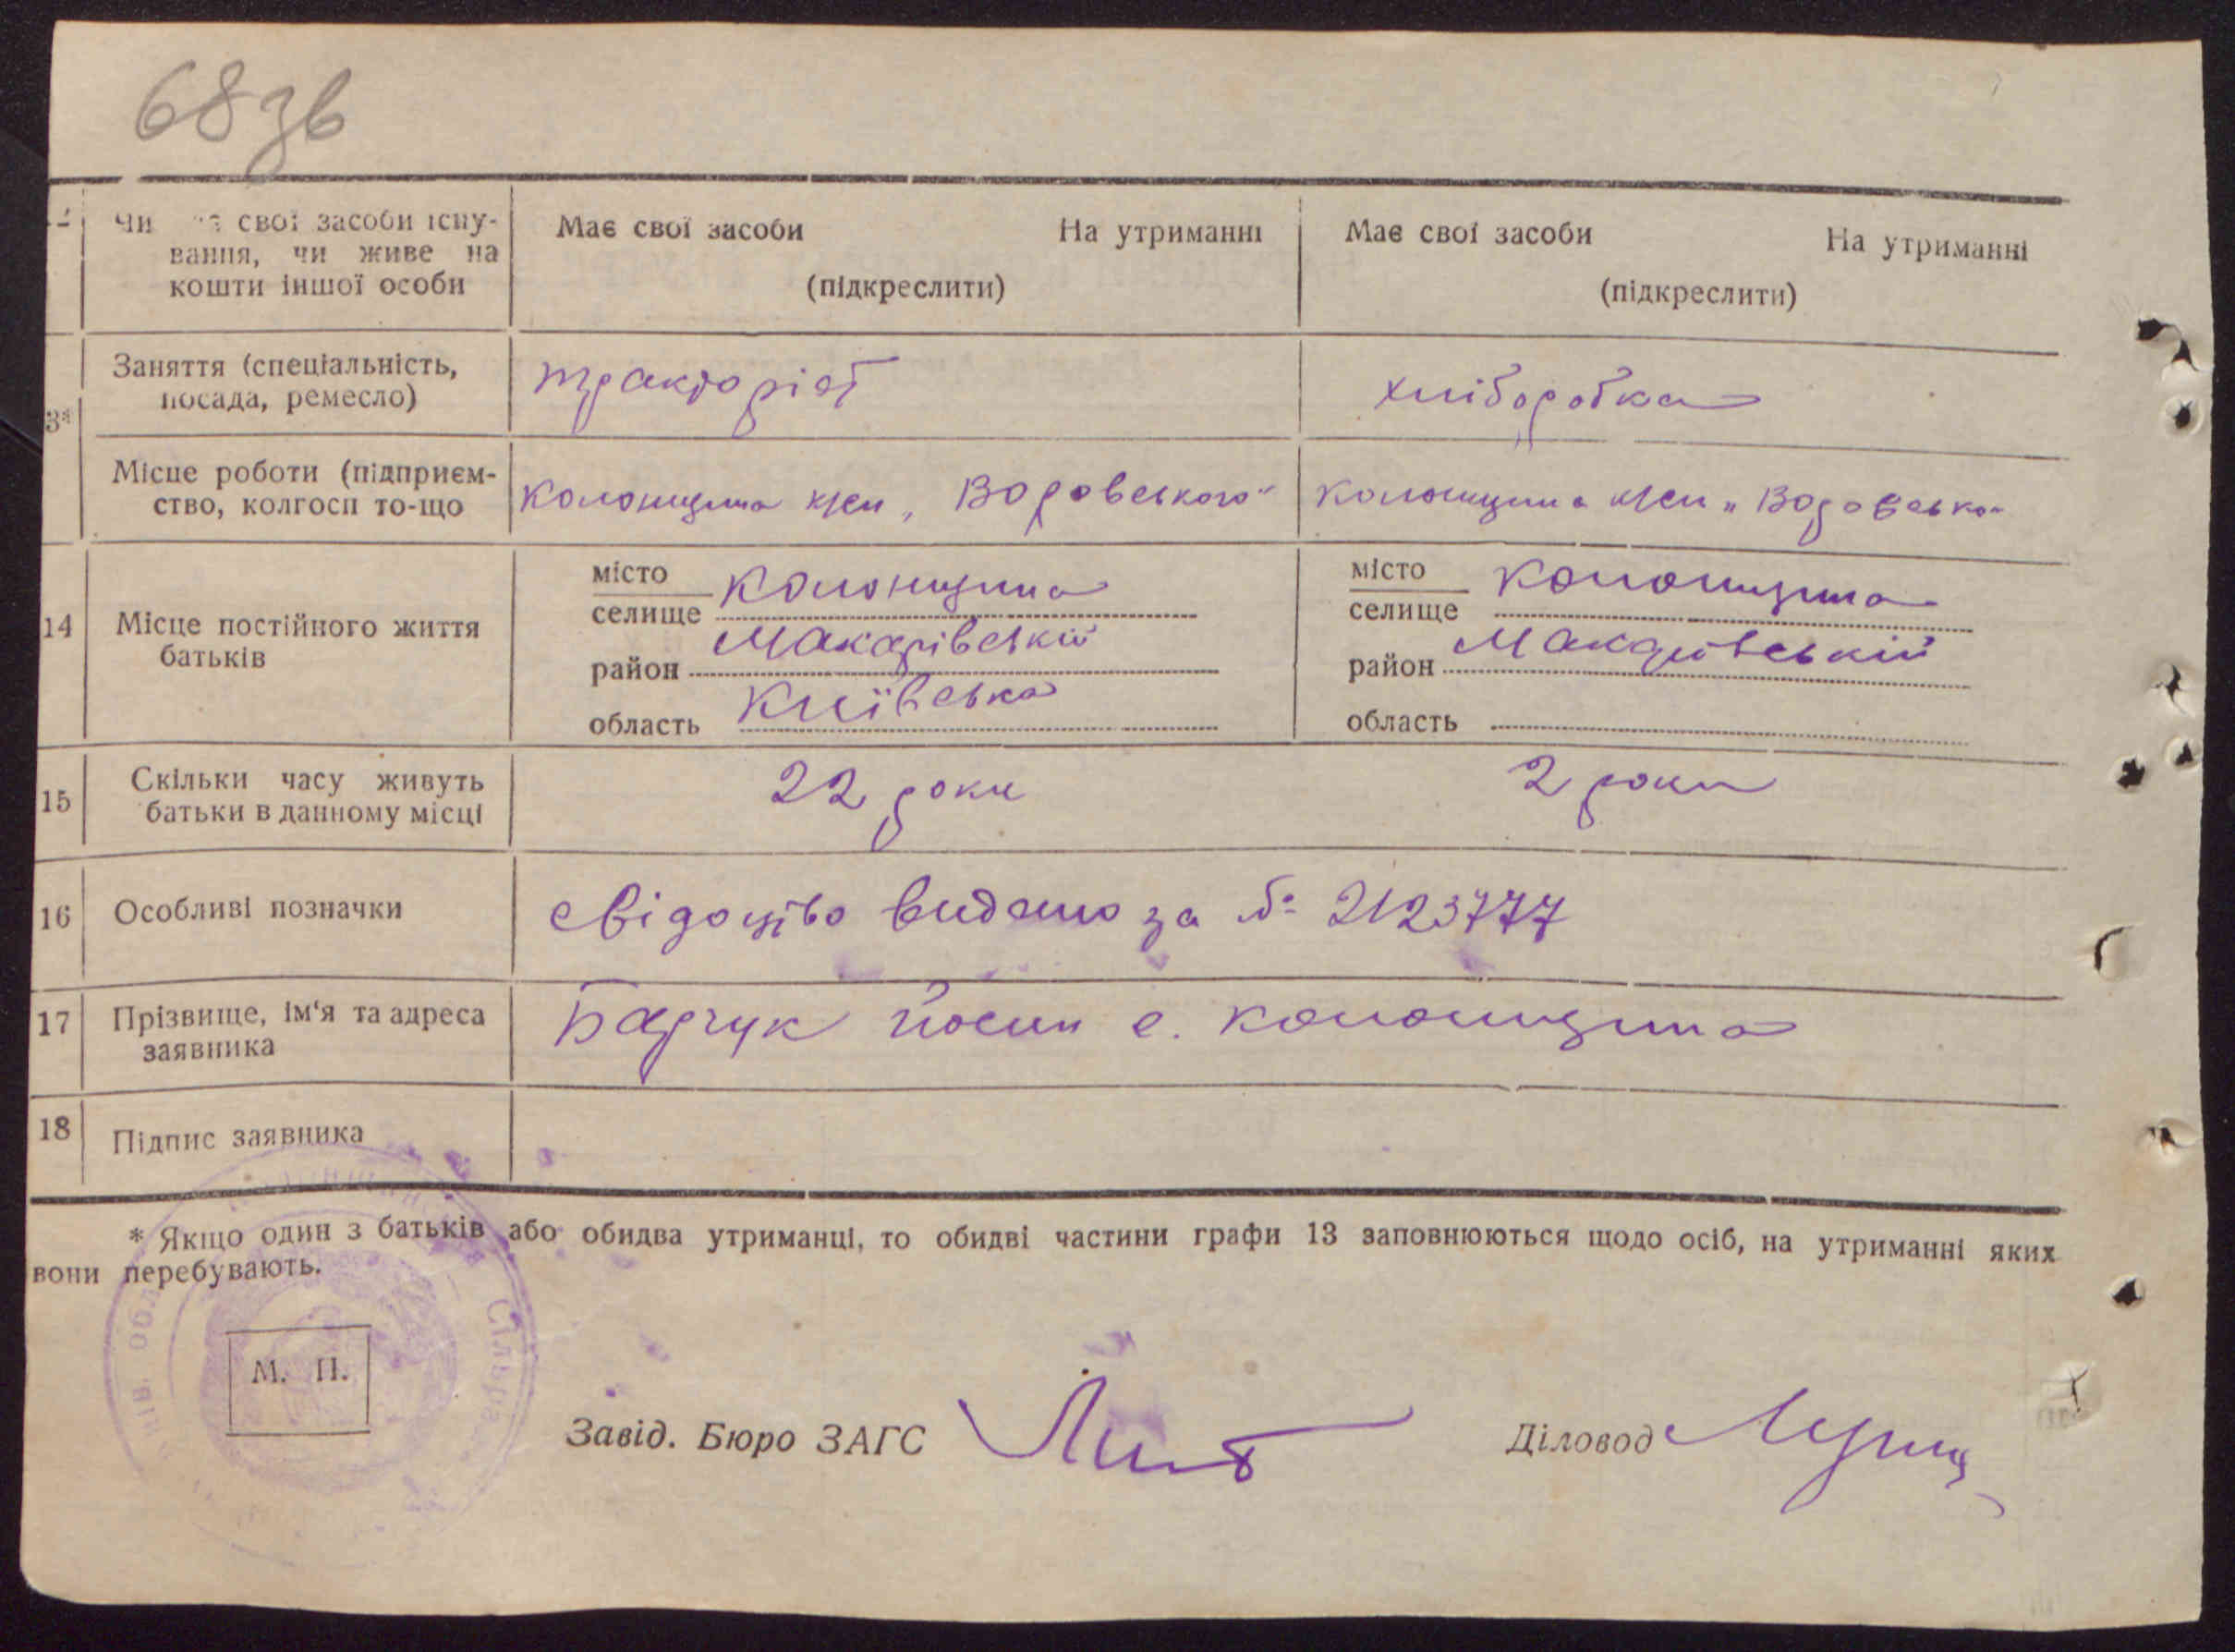 68 зв
Чи має свої засоби існу-
вання, чи живе на
кошти іншої особи
Має свої засоби На утриманні
(підкреслити)
Має свої засоби На утриманні
(підкреслити)
3*
Заняття (спеціальність,
посада, ремесло)
тракторіст
хліборобка
Місце роботи (підприєм-
ство, колгосп то-що
Колонщина імени „Воровського“
Колонщина імени „Воровсько-
14
Місце постійного життя
батьків
місто
селище Колонщина
район Макарівській
область Київська
місто
селище Колонщина
район Макарівській
область
15
Скільки часу живуть
батьки в данному місці
22 роки
2 роки
16
Особливі позначки
свідоцтво видано за № 2123777
17
Прізвище, ім'я та адреса
заявника
Барчук Йосип с. Колонщина
18
Підпис заявника
* Якщо один з батьків або обидва утриманці, то обидві частини графи 13 заповнюються щодо осіб, на утриманні яких
вони перебувають.
обл. Сільрада
М. П.
Завід. Бюро ЗАГС
Діловод